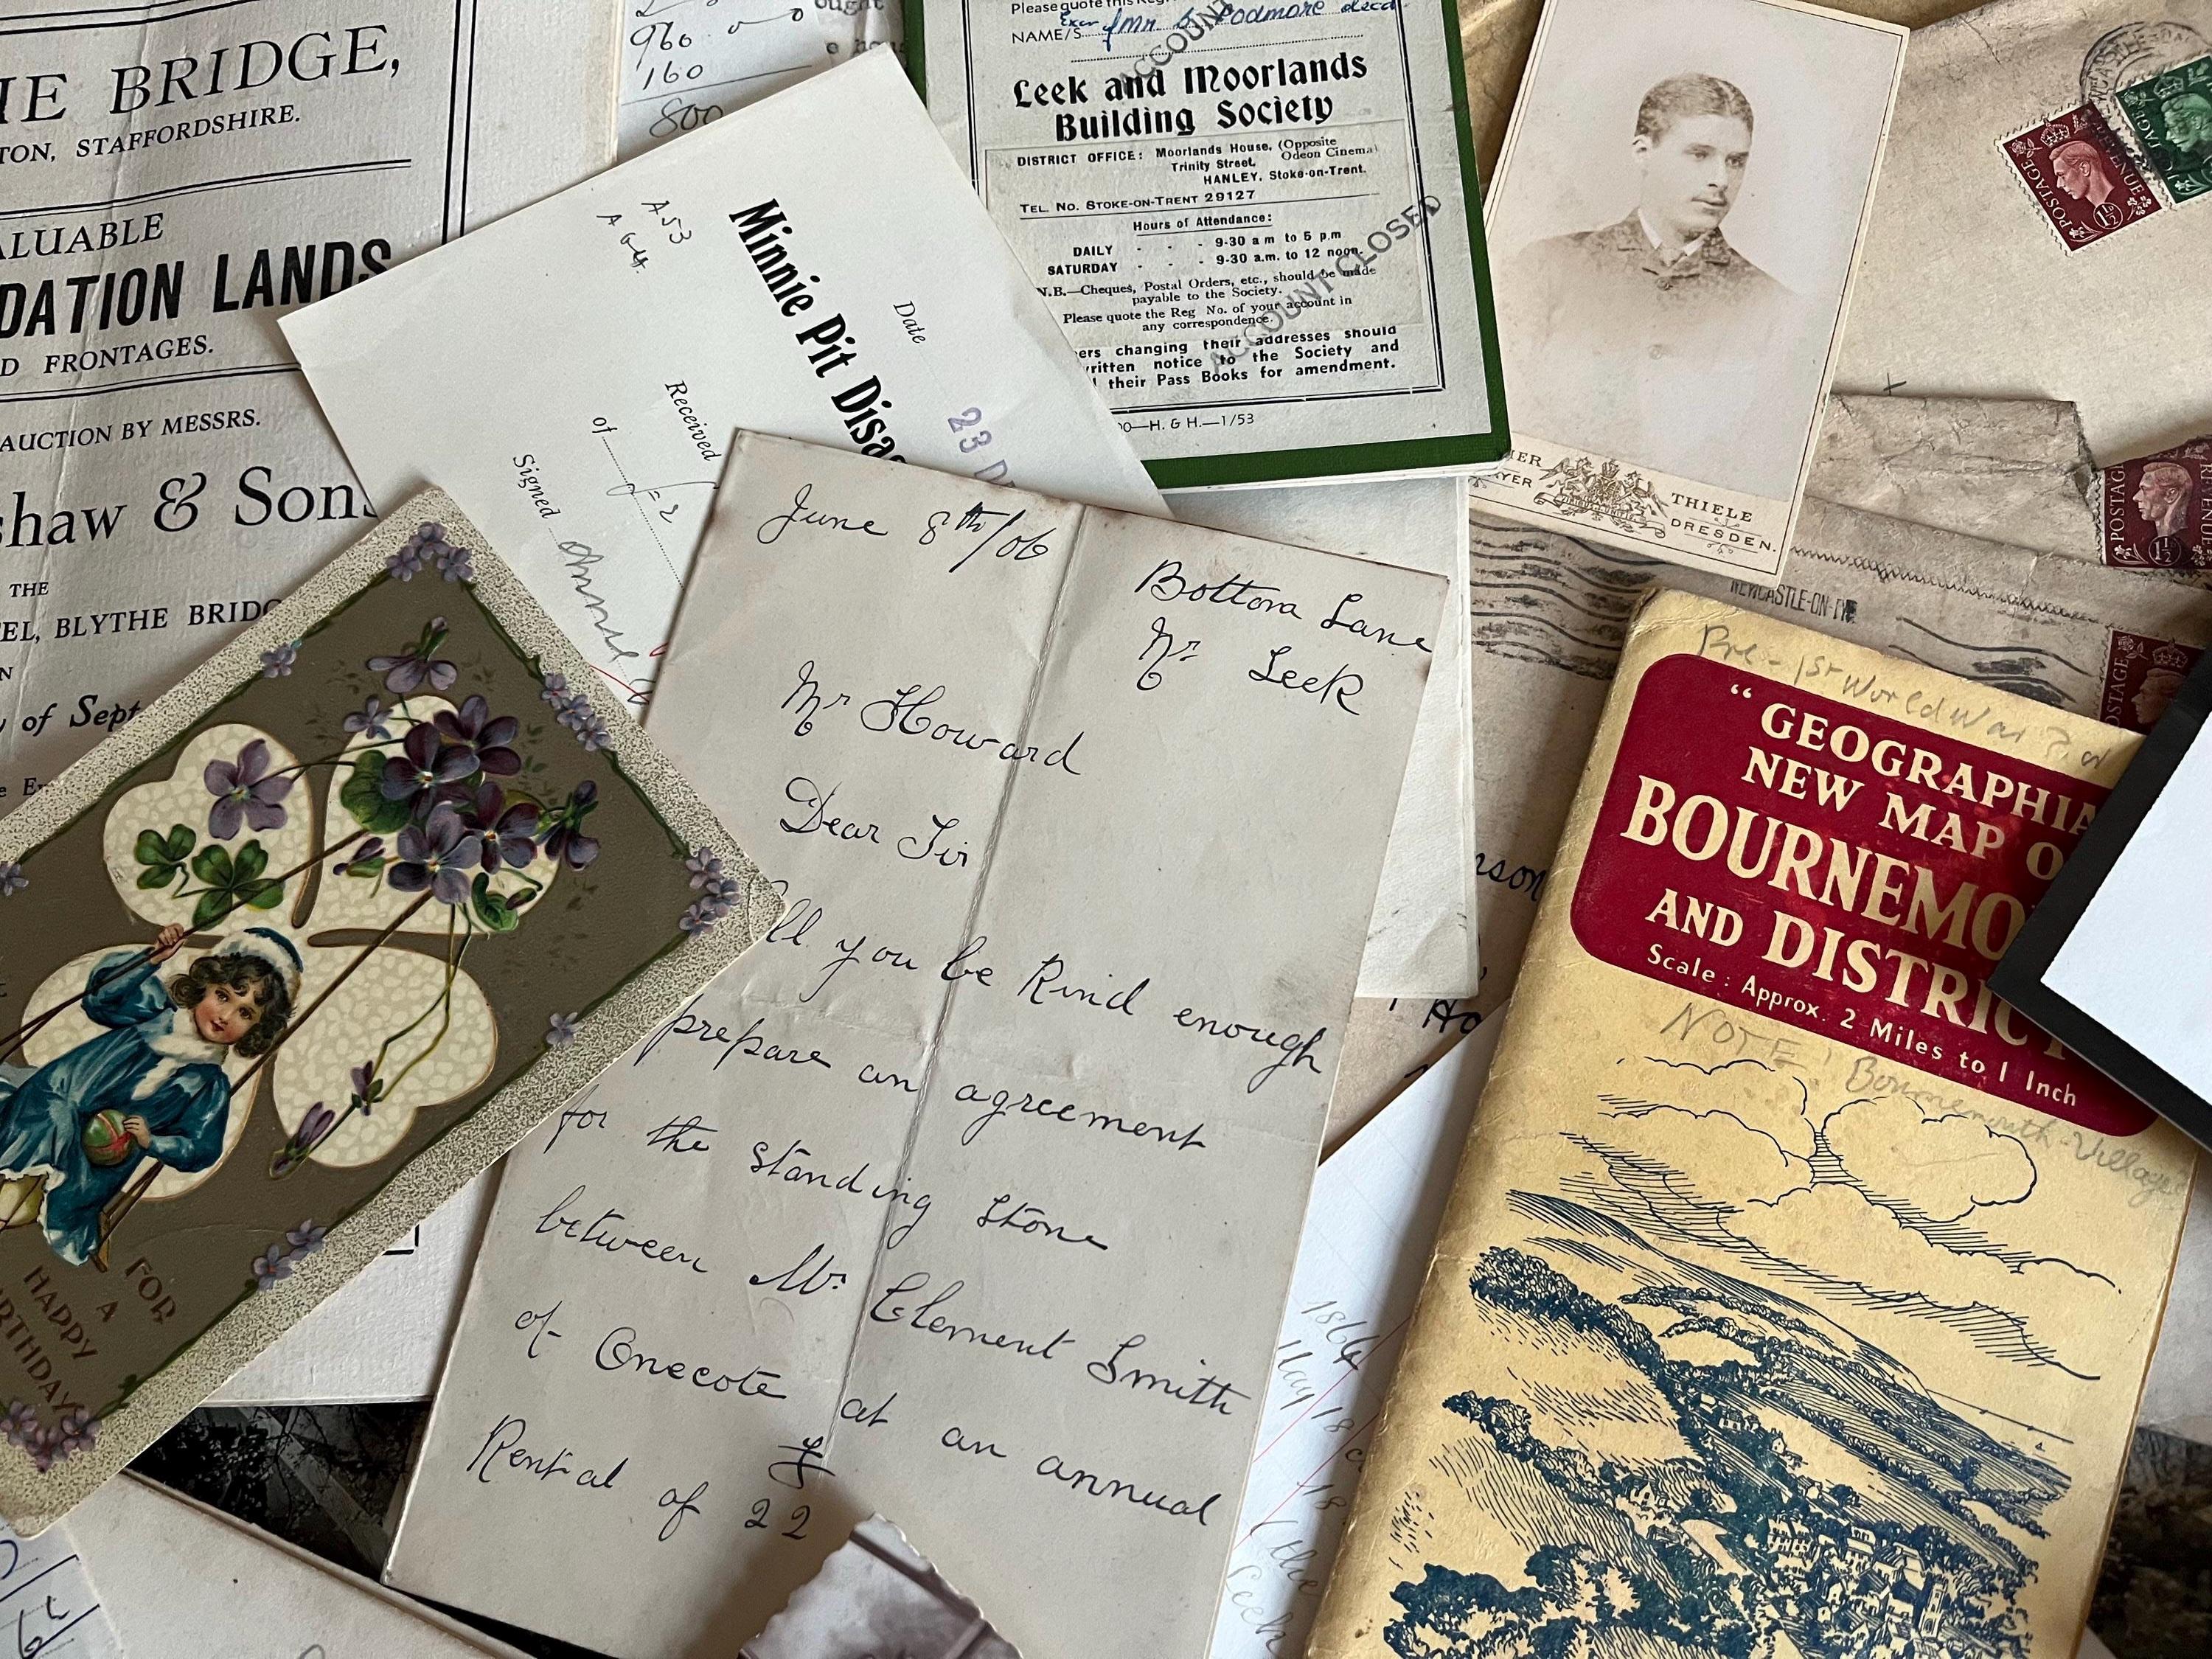 IE BRIDGE,
TON, STAFFORDSHIRE.
ALUABLE
DATION LANDS
D FRONTAGES.
AUCTION BY MESSRS.
shaw & Sons
THE
EL, BLYTHE BRIDG
y of Sept
960
160
800
A 53
Minnie Pit Disas
Date
23 D
Received
of £2
Signed
Please quote this Reg
NAME/S Exor of Mr S. Podmore decd.
Leek and Moorlands
Building Society
DISTRICT OFFICE: Moorlands House, (Opposite
Odeon Cinema)
Trinity Street,
HANLEY, Stoke-on-Trent.
TEL. No. STOKE-ON-TRENT 29127
Hours of Attendance:
DAILY - - - 9-30 a m to 5 p.m
SATURDAY - - - 9-30 a.m. to 12 noon.
N.B.—Cheques, Postal Orders, etc., should be made
payable to the Society.
Please quote the Reg No. of your account in
any correspondence.
ers changing their addresses should
written notice to the Society and
their Pass Books for amendment.
ACCOUNT CLOSED
ACCOUNT
H. & H.—1/53
THIELE
DRESDEN.
POSTAGE REVENUE
1½D
POSTAGE
1½D
POSTAGE
NEWCASTLE-ON-TYNE
June 8th/06
Bottom Lane
Nr Leek
Mr Howard
Dear Sir
ll you be Kind enough
prepare an agreement
for the standing stone
between Mr Clement Smith
of Onecote at an annual
Rental of £
22
FOR
A
HAPPY
BIRTHDAY
Pre-1st World War?
"GEOGRAPHIA
NEW MAP O
BOURNEMO
AND DISTRICT
Scale: Approx. 2 Miles to 1 Inch
NOTE! Bournemouth-Village
1864
May 18
18
the
Leek